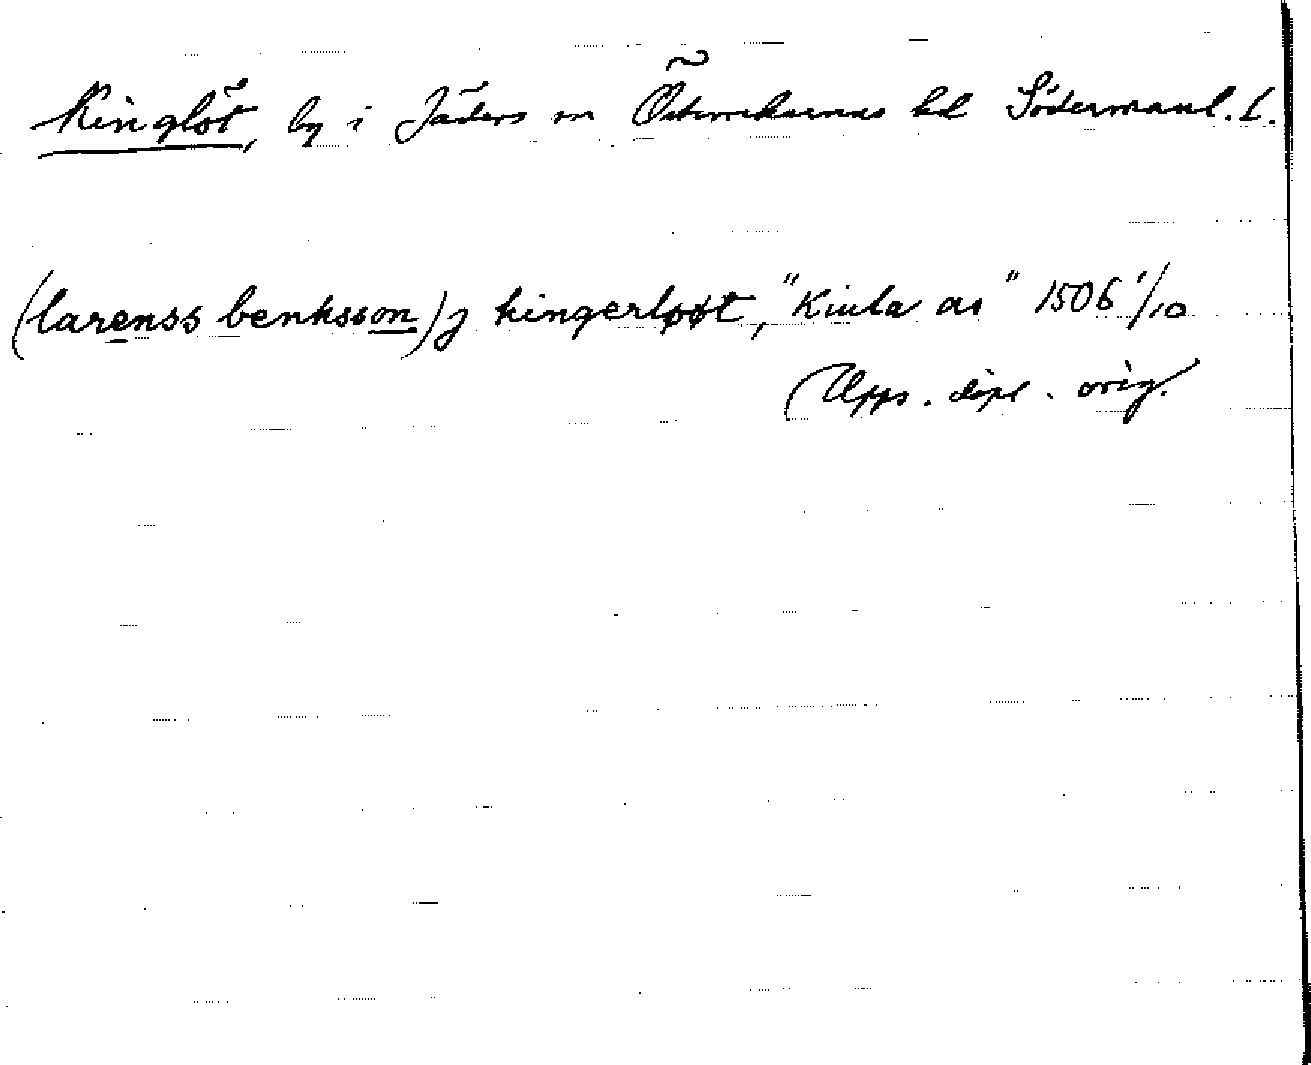 Kinglöt, by i Jäders sn Österrekarnes hd Södermanl. l.
(larenss benksson) j kingerløøt, "Kinla as" 1506 1/10
Upps. dipl. orig.